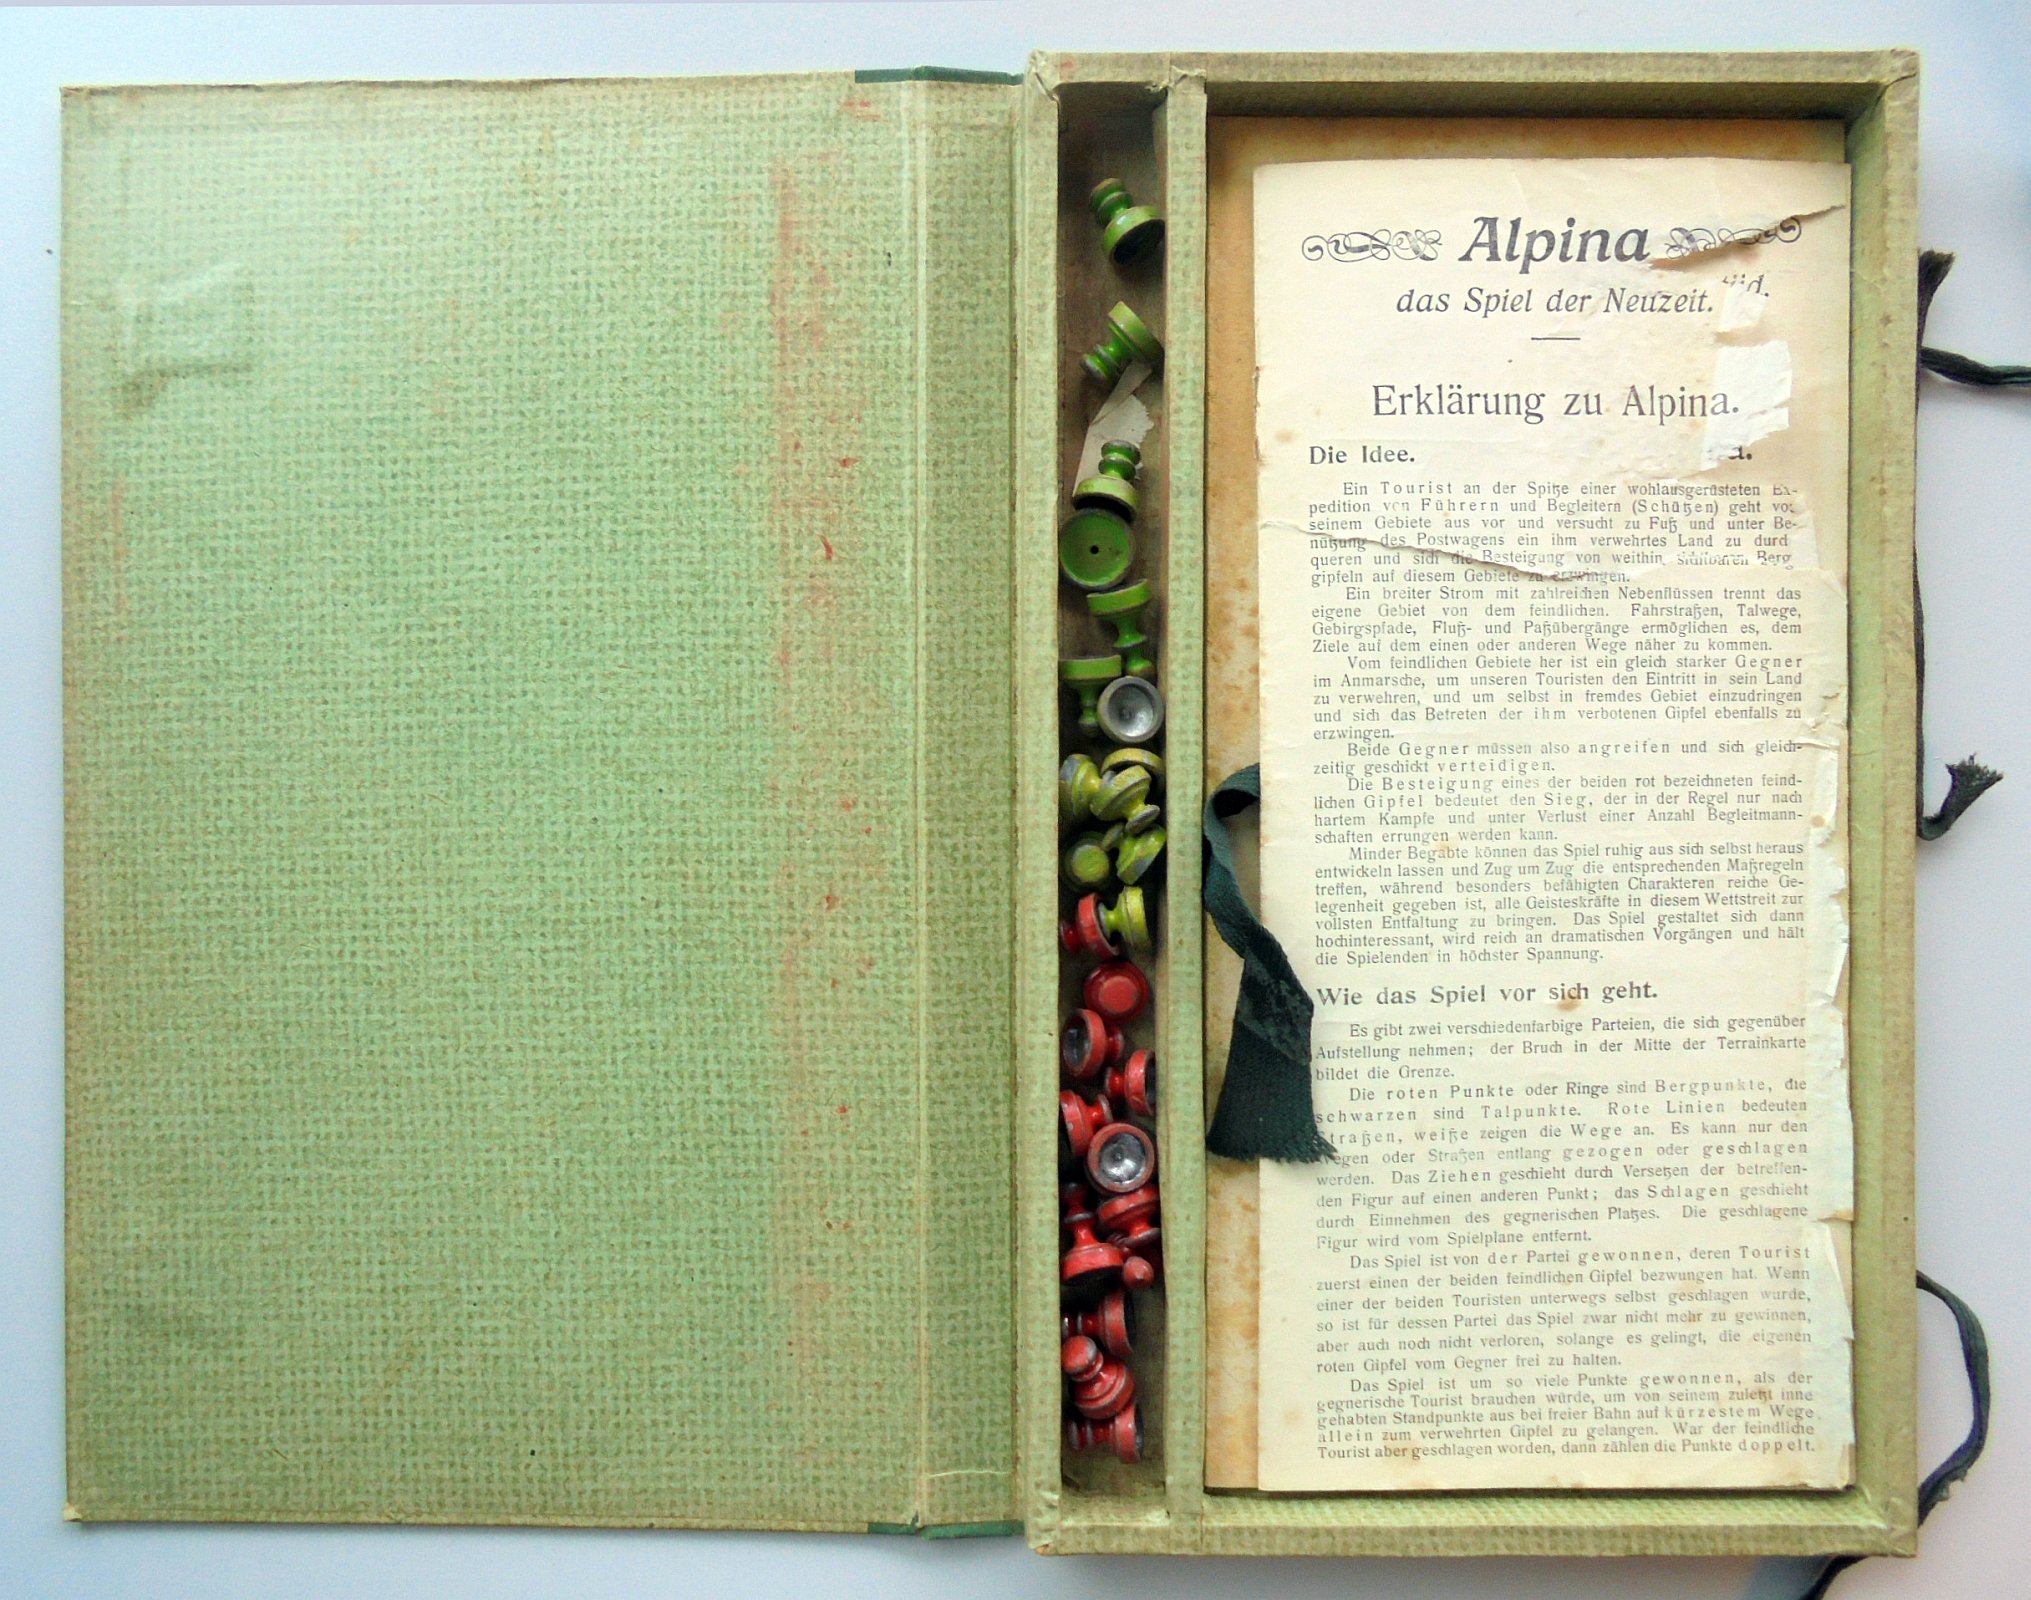 Alpina
das Spiel der Neuzeit.
Erklärung zu Alpina.
Die Idee.
Ein Tourist an der Spitze einer wohlausgerüsteten Ex-
pedition von Führern und Begleitern (Schützen) geht
seinem Gebiete aus vor und versucht zu Fuß und unter Be-
nützung des Postwagens ein ihm verwehrtes Land zu
queren und sich die Besteigung von weithin sichtbaren Berg
gipfeln auf diesem Gebiete zu erzwingen.
Ein breiter Strom mit zahlreichen Nebenflüssen trennt das
eigene Gebiet von dem feindlichen. Fahrstraßen, Talwege,
Gebirgspfade, Fluß- und Paßübergänge ermöglichen es, dem
Ziele auf dem einen oder anderen Wege näher zu kommen.
Vom feindlichen Gebiete her ist ein gleich starker Gegner
im Anmarsche, um unseren Touristen den Eintritt in sein Land
zu verwehren, und um selbst in fremdes Gebiet einzudringen
und sich das Betreten der ihm verbotenen Gipfel ebenfalls zu
erzwingen.
Beide Gegner müssen also angreifen und sich gleich-
zeitig geschickt verteidigen.
Die Besteigung eines der beiden rot bezeichneten feind-
lichen Gipfel bedeutet den Sieg, der in der Regel nur nach
hartem Kampfe und unter Verlust einer Anzahl Begleitmann-
schaften errungen werden kann.
Minder Begabte können das Spiel ruhig aus sich selbst heraus
entwickeln lassen und Zug um Zug die entsprechenden Maßregeln
treffen, während besonders befähigten Charakteren reiche Ge-
legenheit gegeben ist, alle Geisteskräfte in diesem Wettstreit zur
vollsten Entfaltung zu bringen. Das Spiel gestaltet sich dann
hochinteressant, wird reich an dramatischen Vorgängen und hält
die Spielenden in höchster Spannung.
Wie das Spiel vor sich geht.
Es gibt zwei verschiedenfarbige Parteien, die sich gegenüber
Aufstellung nehmen; der Bruch in der Mitte der Terrainkarte
bildet die Grenze.
Die roten Punkte oder Ringe sind Bergpunkte, die
schwarzen sind Talpunkte. Rote Linien bedeuten
Straßen, weiße zeigen die Wege an. Es kann nur den
Wegen oder Straßen entlang gezogen oder geschlagen
werden. Das Ziehen geschieht durch Versetzen der betreffen-
den Figur auf einen anderen Punkt; das Schlagen geschieht
durch Einnehmen des gegnerischen Platzes. Die geschlagene
Figur wird vom Spielplane entfernt.
Das Spiel ist von der Partei gewonnen, deren Tourist
zuerst einen der beiden feindlichen Gipfel bezwungen hat. Wenn
einer der beiden Touristen unterwegs selbst geschlagen wurde,
so ist für dessen Partei das Spiel zwar nicht mehr zu gewinnen,
aber auch noch nicht verloren, solange es gelingt, die eigenen
roten Gipfel vom Gegner frei zu halten.
Das Spiel ist um so viele Punkte gewonnen, als der
gegnerische Tourist brauchen würde, um von seinem zuletzt inne
gehabten Standpunkte aus bei freier Bahn auf kürzestem Wege
allein zum verwehrten Gipfel zu gelangen. War der feindliche
Tourist aber geschlagen worden, dann zählen die Punkte doppelt.